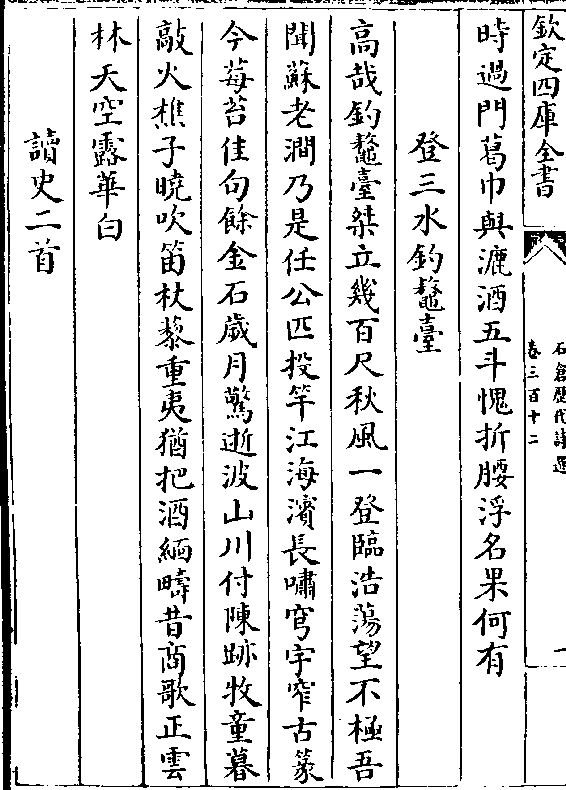 欽定四庫全書
石倉歷代詩選
卷三百十二
一
時過門葛巾與漉酒五斗愧折腰浮名果何有
登三水釣鼇臺
高哉釣鼇臺桀立幾百尺秋風一登臨浩蕩望不極吾
聞蘇老澗乃是任公匹投竿江海濱長嘯穹宇窄古篆
今莓苔佳句餘金石歲月驚逝波山川付陳跡牧童暮
敲火樵子曉吹笛杖藜重夷猶把酒緬疇昔商歌正雲
林天空露華白
讀史二首